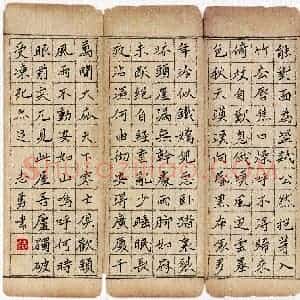 能對面為盜賊公然抱茅入
竹去唇焦口燥呼不得歸來
倚杖自嘆息俄頃風定雲墨
色秋天漠漠向昏黑布衾多
年冷似鐵嬌兒惡臥踏裏裂
床頭屋漏無乾處雨腳如麻
未斷絕自經喪亂少睡眠長
夜沾濕何由徹安得廣廈千
萬間大庇天下寒士俱歡顏
風雨不動安如山嗚呼何時
眼前突兀見此屋吾廬獨破
受凍死亦足 志勇書